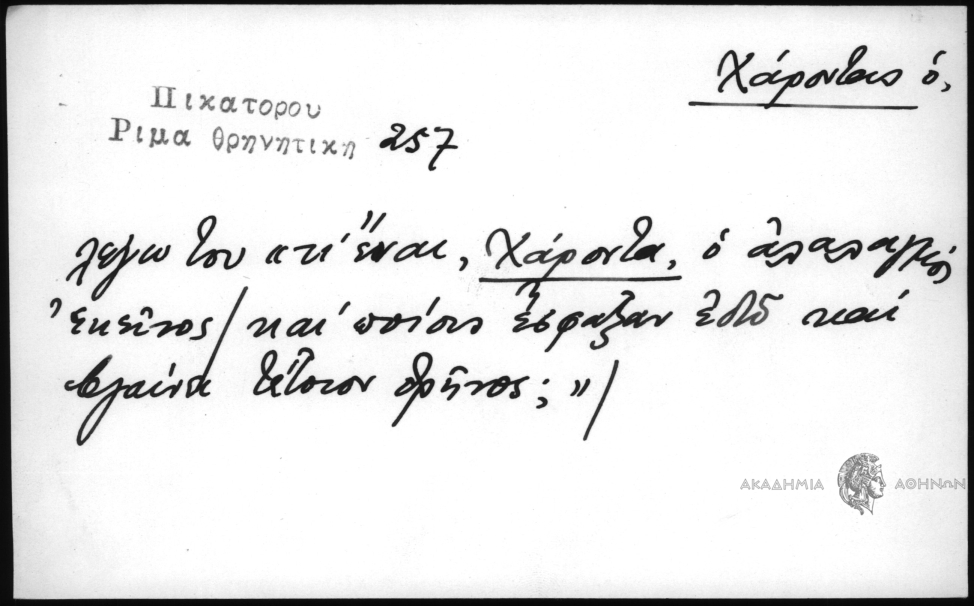 Χάροντας ὁ,
Πικατορου
Ριμα θρηνητικη 257
λεγω του «τί ἔναι, Χάροντα, ὁ ἀλαλαγμός
ἐκεῖνος/ καί ποίσιν ἔσφαξαν ἐδῶ καί
βγαίνει τέτοιον θρῆνος; »/
ΑΚΑΔΗΜΙΑ ΑΘΗΝΩΝ